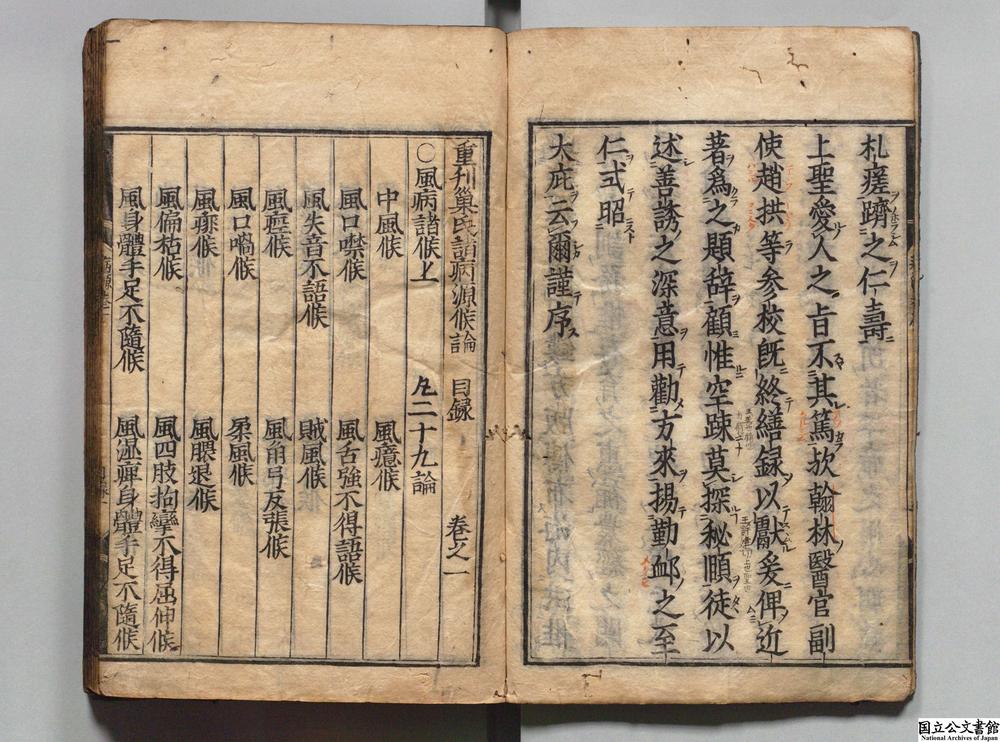 札瘥躋之仁壽
上聖愛人之旨不其篤歟翰林醫官副
使趙拱等參校旣終繕録以獻爰俾近
著爲之題辭顧惟空疎莫探秘賾徒以
述善誘之深意用勸方來揚勤卹之至
仁式昭
大庇云爾謹序
重刊巢氏諸病源候論 目録 卷之一
〇風病諸候上 凡二十九論
中風候 風癔候
風口噤候 風舌強不得語候
風失音不語候 賊風候
風痙候 風角弓反張候
風口喎候 柔風候
風痱候 風腲退候
風偏枯候 風四肢拘攣不得屈伸候
風身體手足不隨候 風濕痺身體手足不隨候
国立公文書館
National Archives of Japan